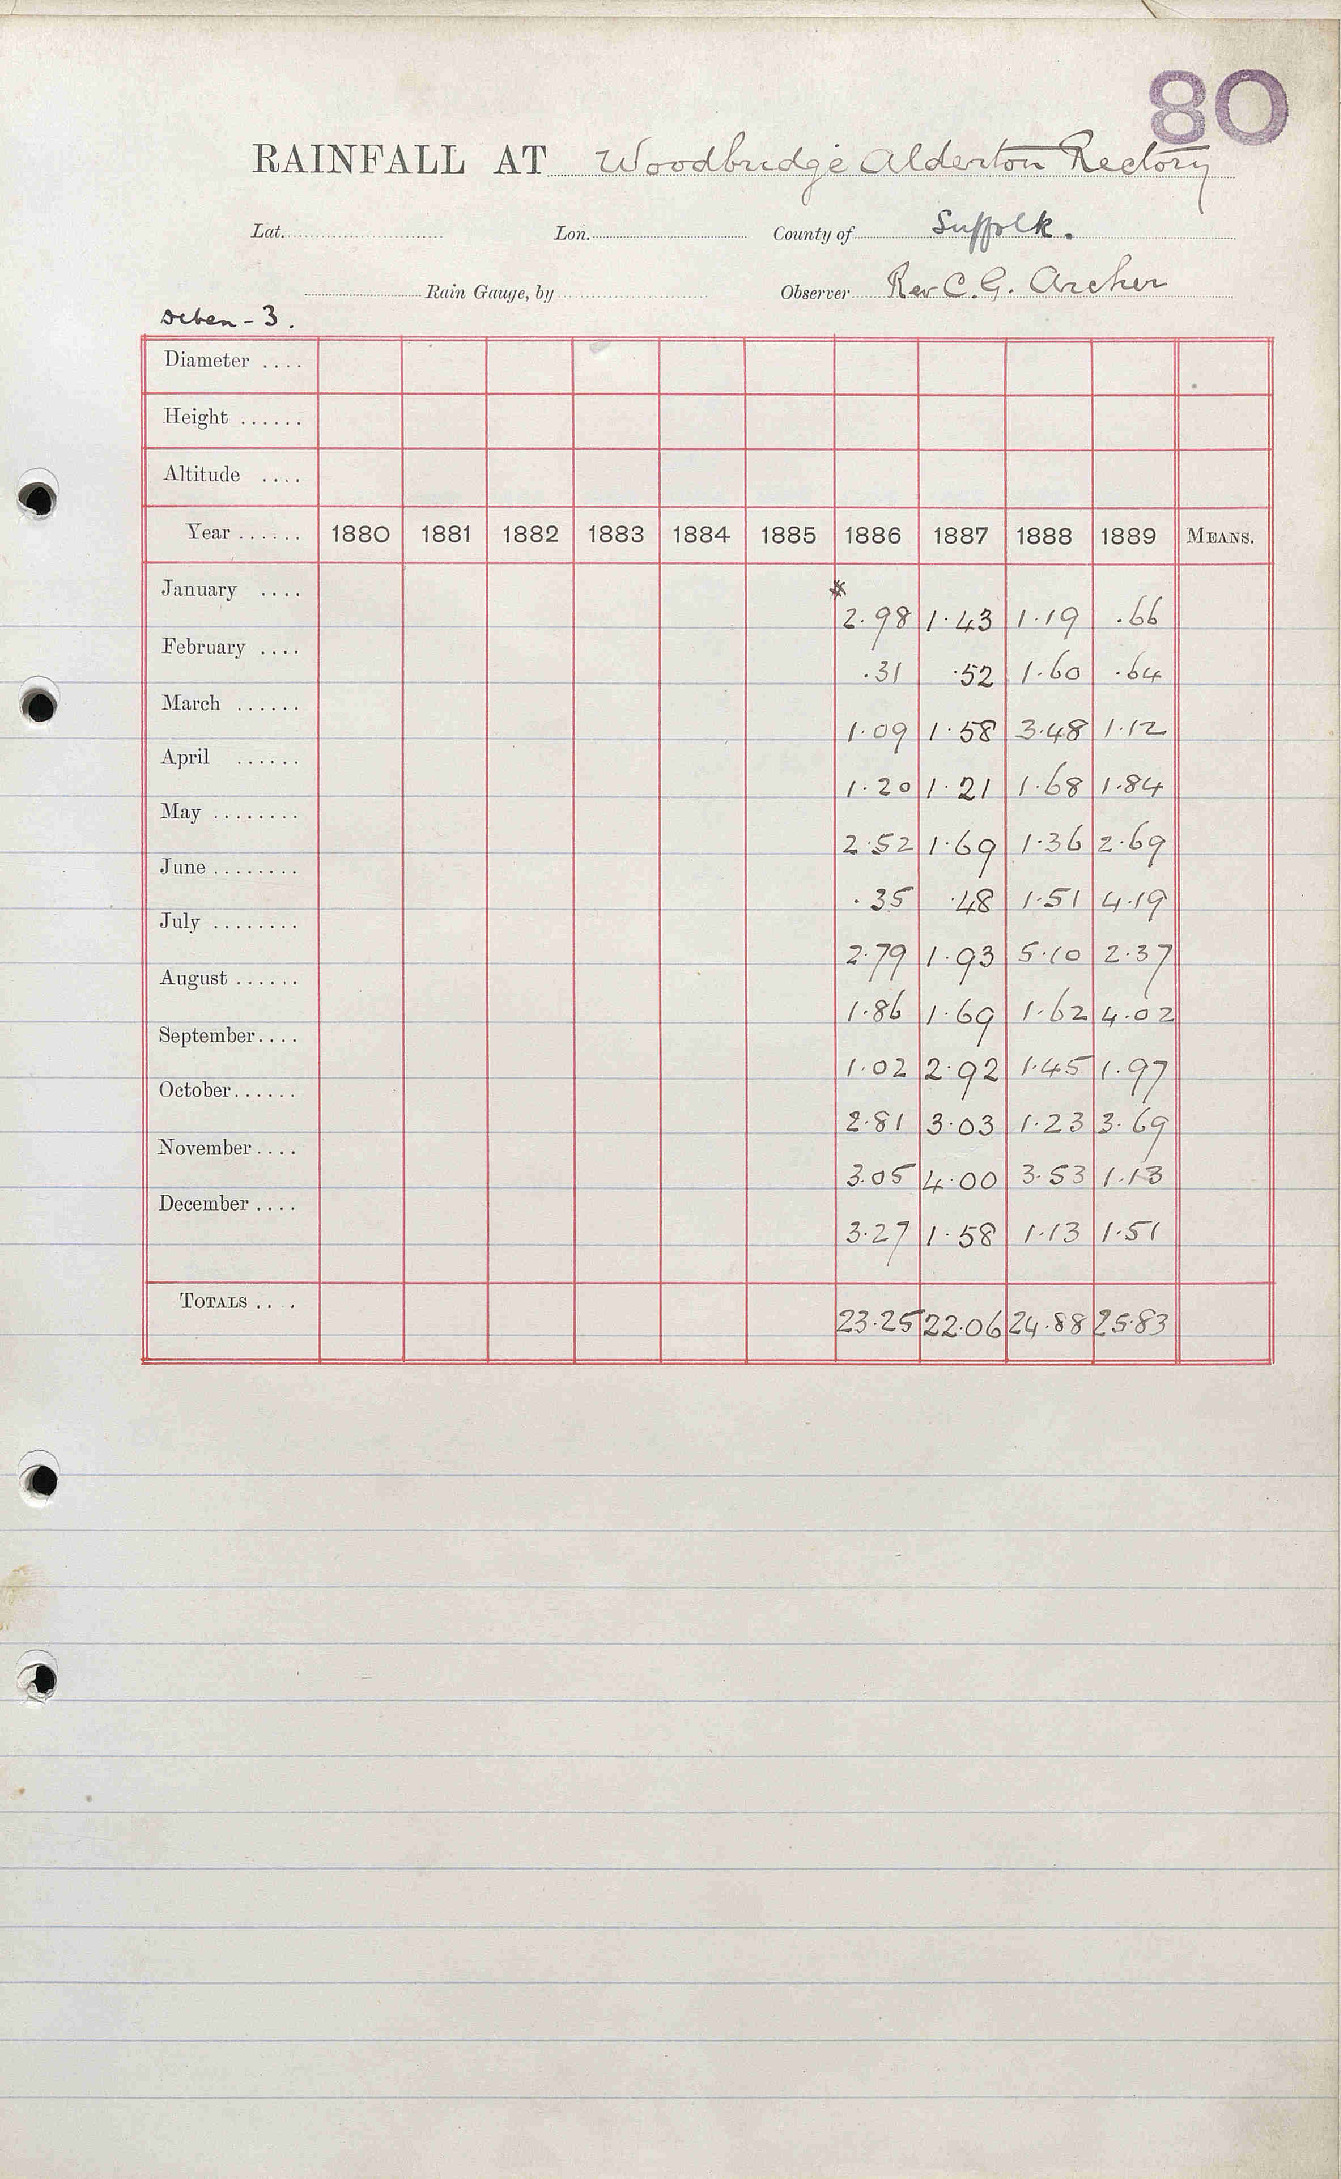 80
RAINFALL AT Woodbridge Alderton Rectory
Lat. Lon. County of Suffolk.
Rain Gauge, by Observer Rev C. G. Archer
Deben - 3.
Diameter ....
Height ......
Altitude ....
Year ...... 1880 1881 1882 1883 1884 1885 1886 1887 1888 1889 MEANS.
January .... * 2.98 1.43 1.19 .66
February .... .31 .52 1.60 .64
March ...... 1.09 1.58 3.48 1.12
April ...... 1.20 1.21 1.68 1.84
May ........ 2.52 1.69 1.36 2.69
June ........ .35 .48 1.51 4.19
July ........ 2.79 1.93 5.10 2.37
August ...... 1.86 1.69 1.62 4.02
September .... 1.02 2.92 1.45 1.97
October ...... 2.81 3.03 1.23 3.69
November .... 3.05 4.00 3.53 1.13
December .... 3.27 1.58 1.13 1.51
TOTALS .... 23.25 22.06 24.88 25.83